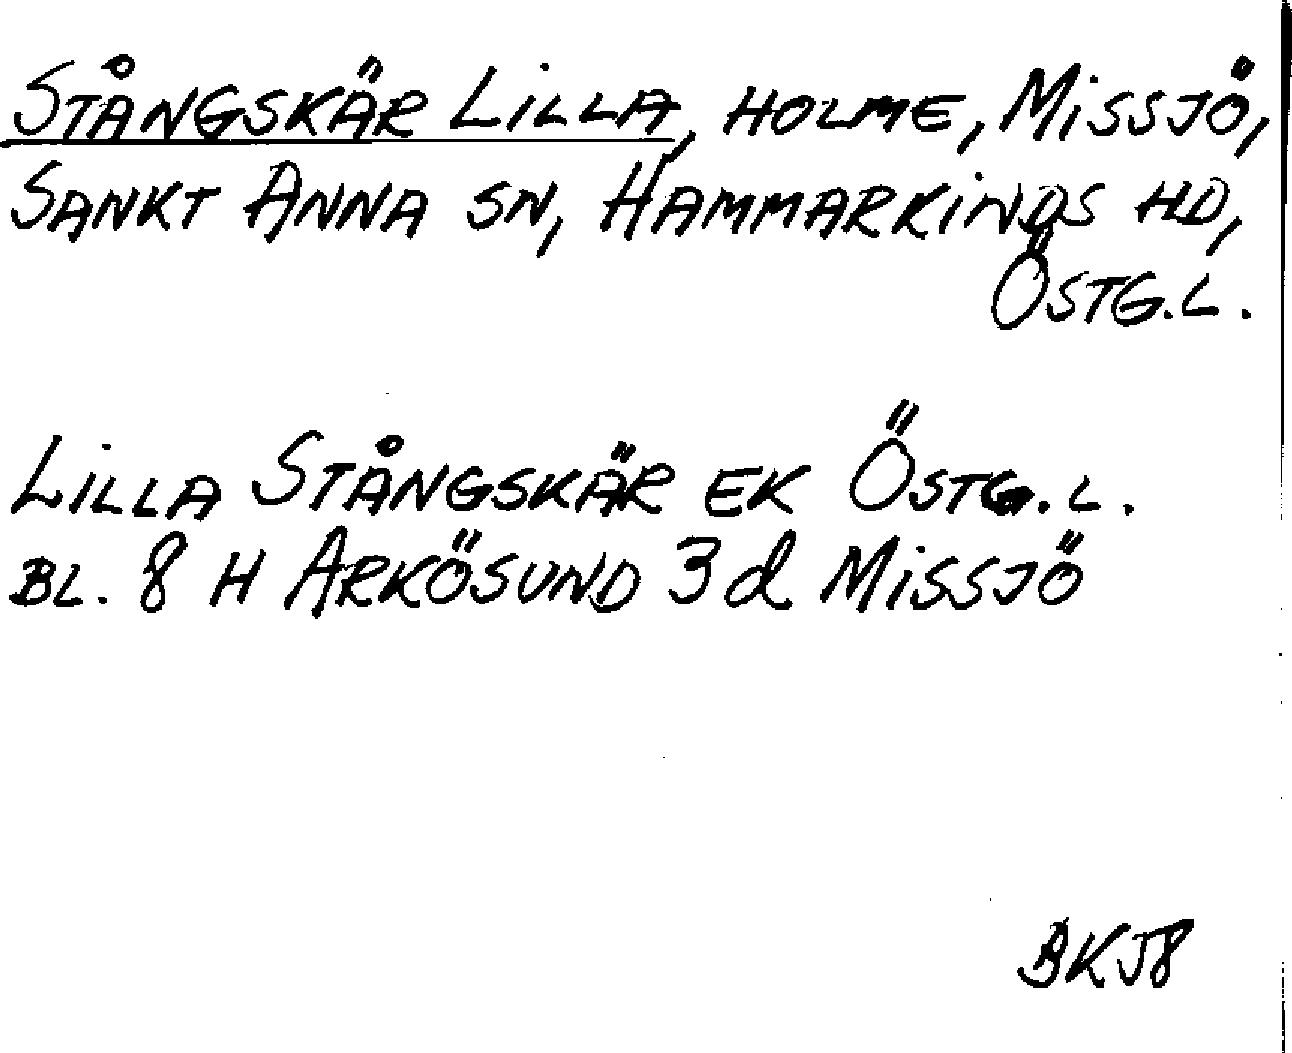 STÅNGSKÄR LILLA, HOLME, MISSJÖ,
SANKT ANNA SN, HAMMARKINDS HD,
ÖSTG.L.
LILLA STÅNGSKÄR EK ÖSTG.L.
BL. 8 H ARKÖSUND 3d MISSJÖ
BKJ8